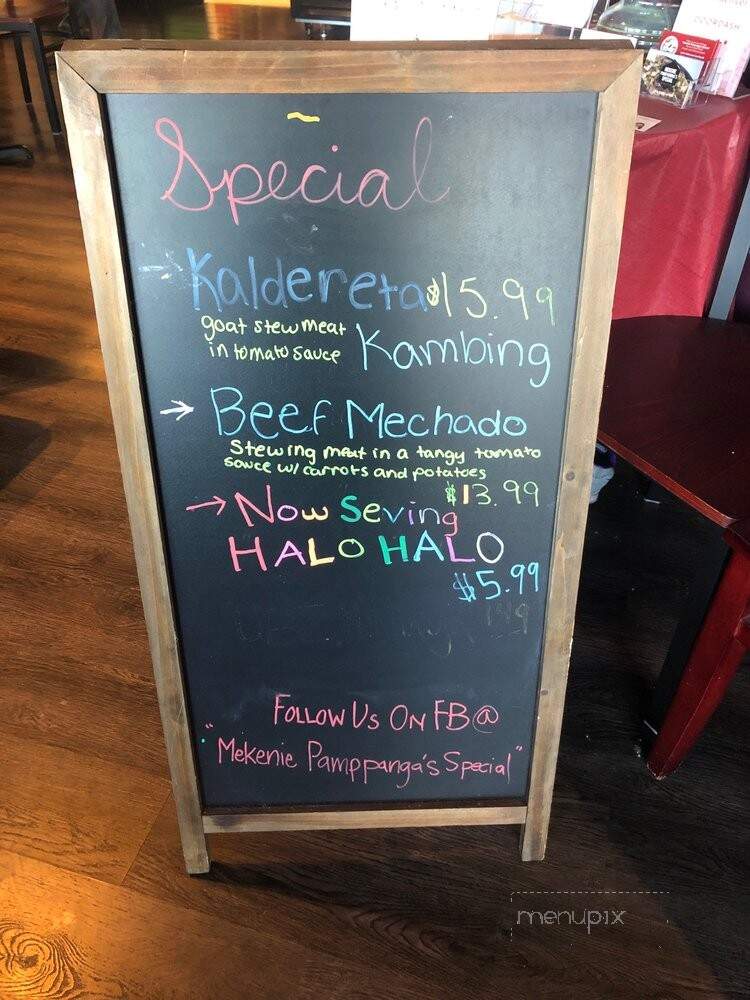 DOORDASH
Special
Kaldereta $15.99
goat stew meat
in tomato sauce
Kambing
Beef Mechado
Stewing meat in a tangy tomato
sauce w/ carrots and potatoes
$13.99
Now Seving
HALO HALO
$5.99
Follow Us On FB@
"Mekenie Pamppanga's Special"
menupix